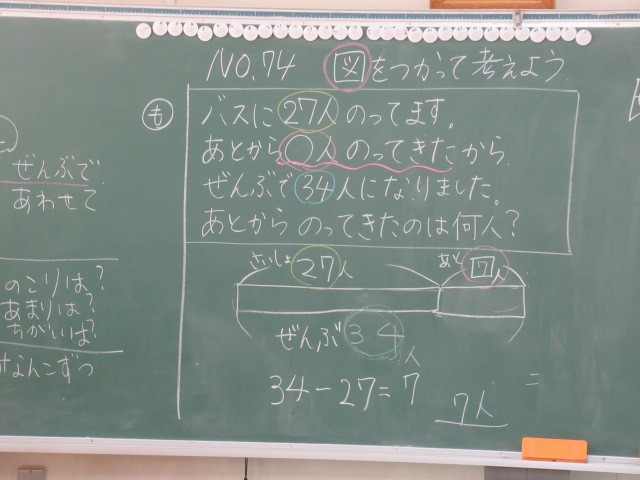 NO.74 図をつかって考えよう
も
バスに27人のってます。
あとから〇人のってきたから
ぜんぶで34人になりました。
あとからのってきたのは何人?
さいしょ 27人
あと 7人
ぜんぶ34人
34-27=7
7人
=
ぜんぶで
あわせて
のこりは?
あまりは?
ちがいは?
なんこずつ